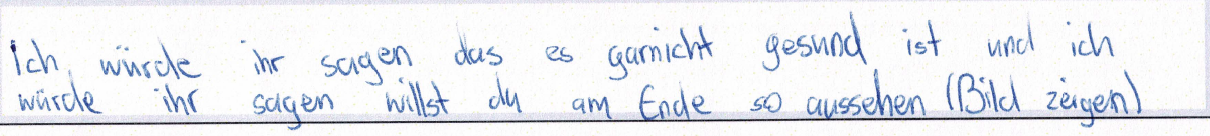 Ich würde ihr sagen das es garnicht gesund ist und ich
würde ihr sagen willst du am Ende so aussehen (Bild zeigen)